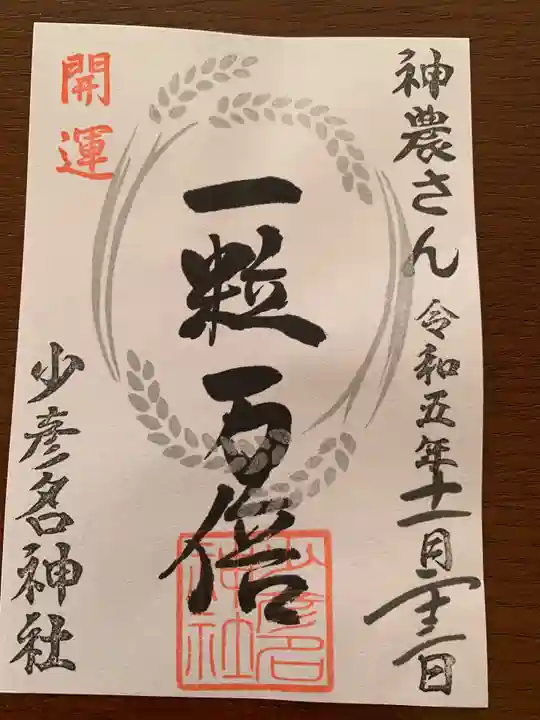 神農さん 令和五年十一月二十三日
一粒万倍
少彦名
神社
開運
少彦名神社